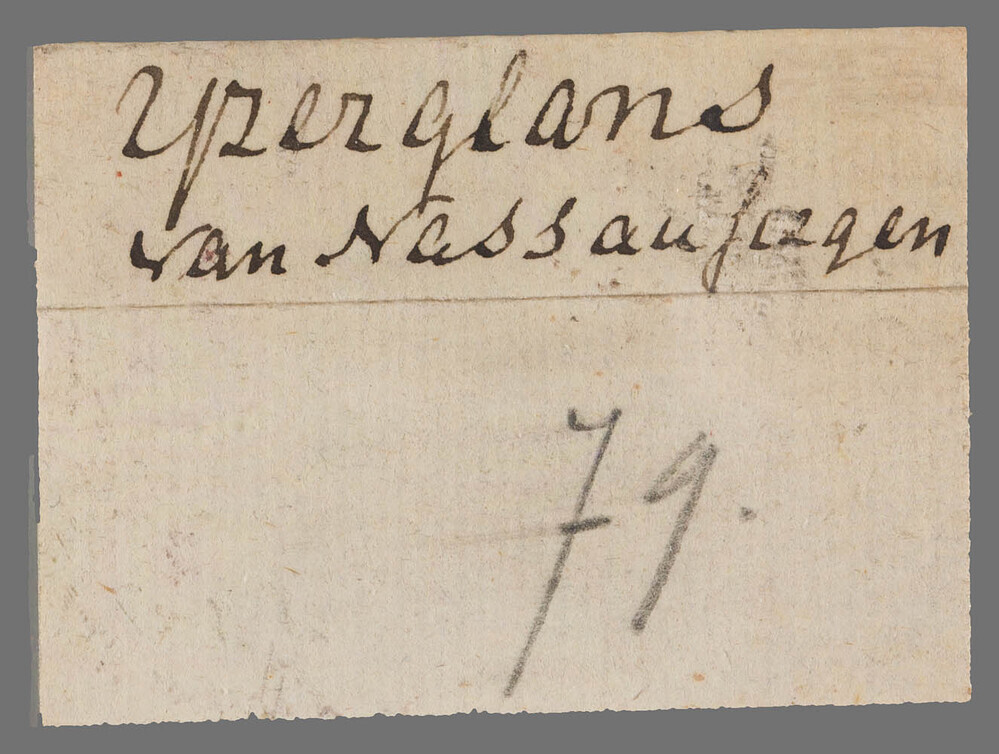 Yzerglans
van Nassau Siegen
79.